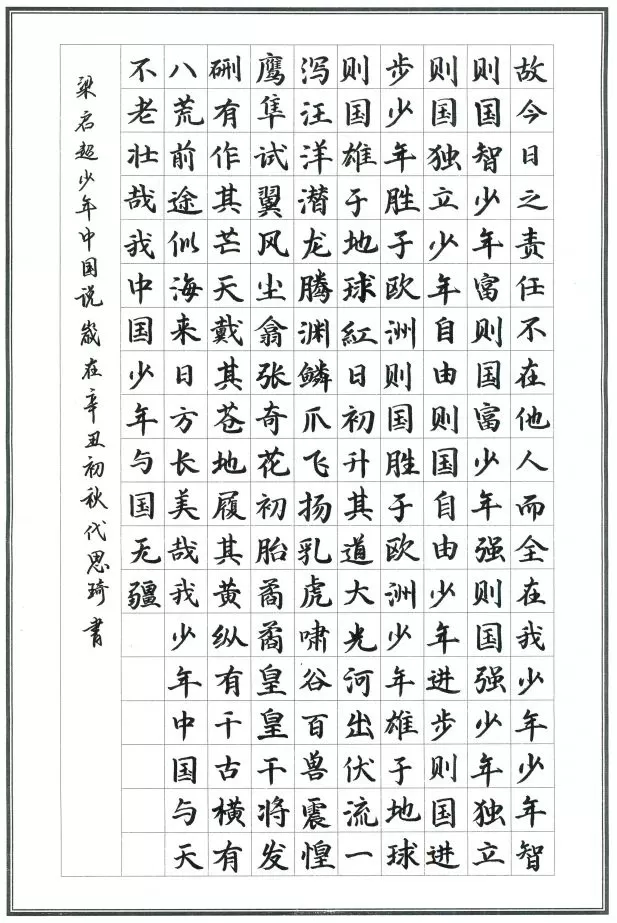 故今日之责任不在他人而全在我少年少年智
则国智少年富则国富少年强则国强少年独立
则国独立少年自由则国自由少年进步则国进
步少年胜于欧洲则国胜于欧洲少年雄于地球
则国雄于地球紅日初升其道大光河出伏流一
泻汪洋潜龙腾渊鳞爪飞扬乳虎啸谷百兽震惶
鹰隼试翼风尘翕张奇花初胎矞矞皇皇干将发
硎有作其芒天戴其苍地履其黄纵有千古横有
八荒前途似海来日方长美哉我少年中国与天
不老壮哉我中国少年与国无疆
梁启超少年中国说 嵗在辛丑初秋代思琦书